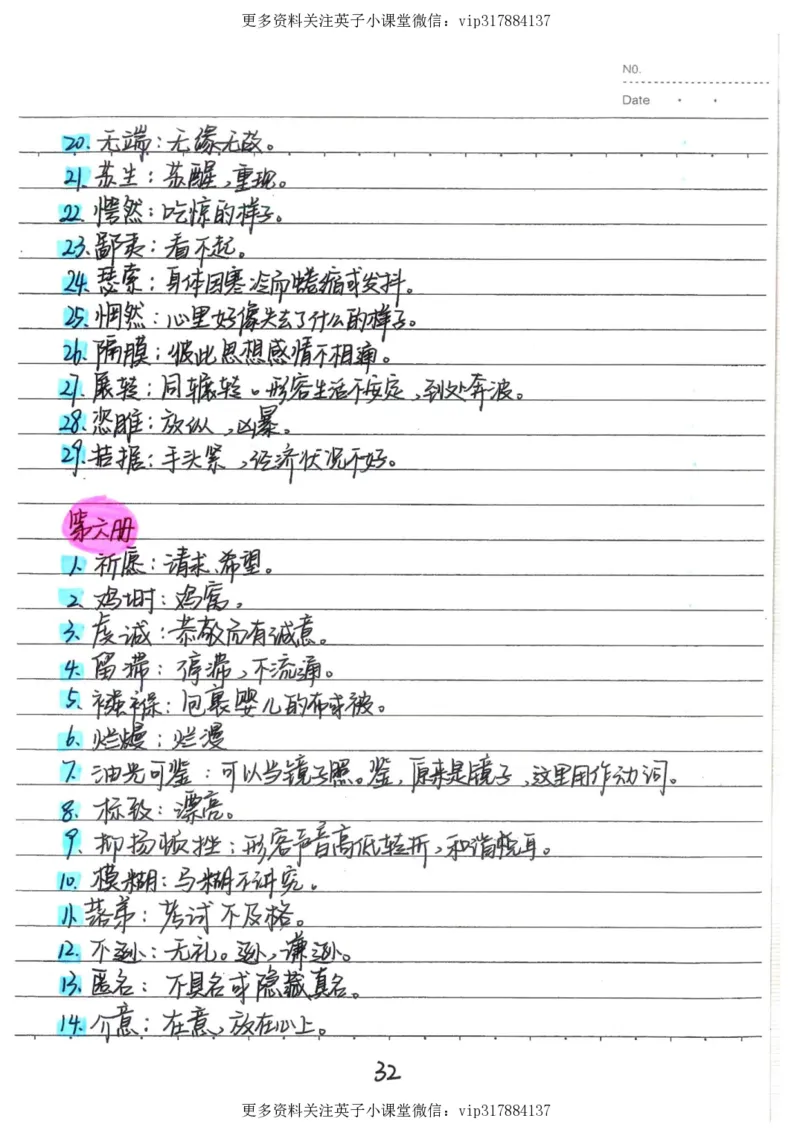 更多资料关注英子小课堂微信：vip317884137
NO.
Date
20. 无端：无缘无故。
21. 苏生：苏醒,重现。
22. 愕然：吃惊的样子。
23. 鄙夷：看不起。
24. 瑟索：身体因寒冷而蜷缩或发抖。
25. 惘然：心里好像失去了什么的样子。
26. 隔膜：彼此思想感情不相通。
27. 展转：同辗转。形容生活不安定,到处奔波。
28. 恣睢：放纵,凶暴。
29. 拮据：手头紧,经济状况不好。
第六册
1. 祈愿：请求、希望。
2. 鸡埘：鸡窝。
3. 虔诚：恭敬而有诚意。
4. 留滞：停滞,不流通。
5. 襁褓：包裹婴儿的布或被。
6. 烂熳：烂漫
7. 油光可鉴：可以当镜子照。鉴,原来是镜子,这里用作动词。
8. 标致：漂亮。
9. 抑扬顿挫：形容声音高低转折,和谐悦耳。
10. 模糊：马糊不讲究。
11. 落第：考试不及格。
12. 不逊：无礼。逊,谦逊。
13. 匿名：不具名或隐藏真名。
14. 介意：在意,放在心上。
32
更多资料关注英子小课堂微信：vip317884137